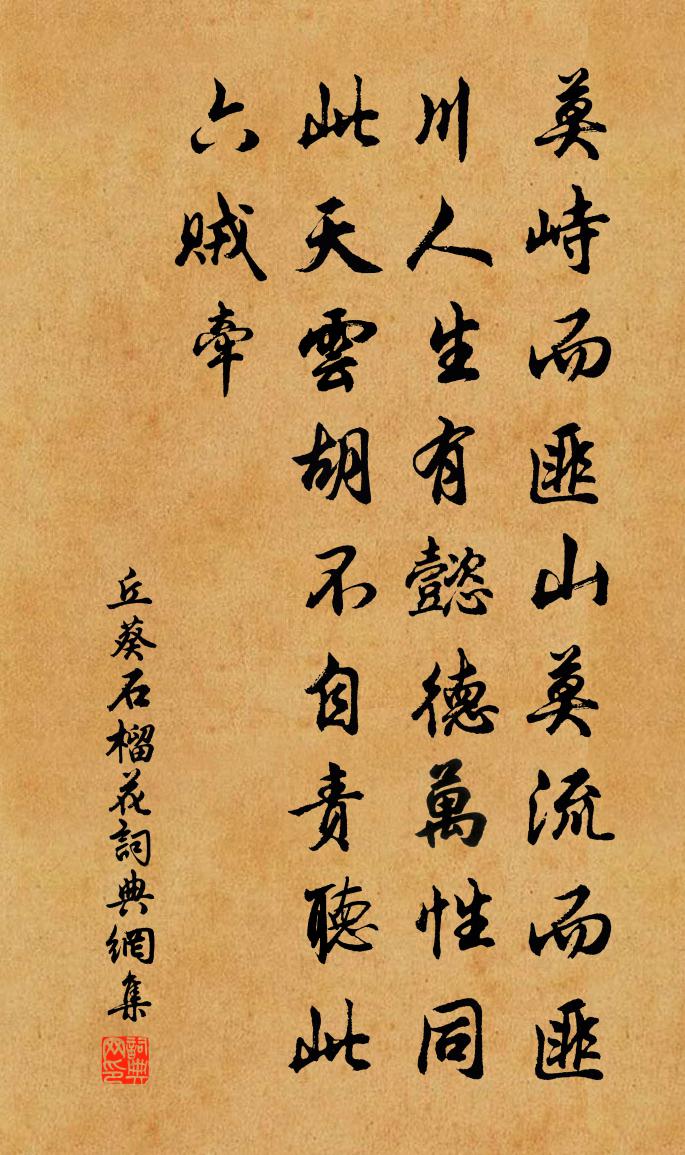 莫峙而匪山莫流而匪
川人生有懿德萬性同
此天雲胡不自責聽此
六賊牽
丘葵石榴花詞典網集
詞典网印